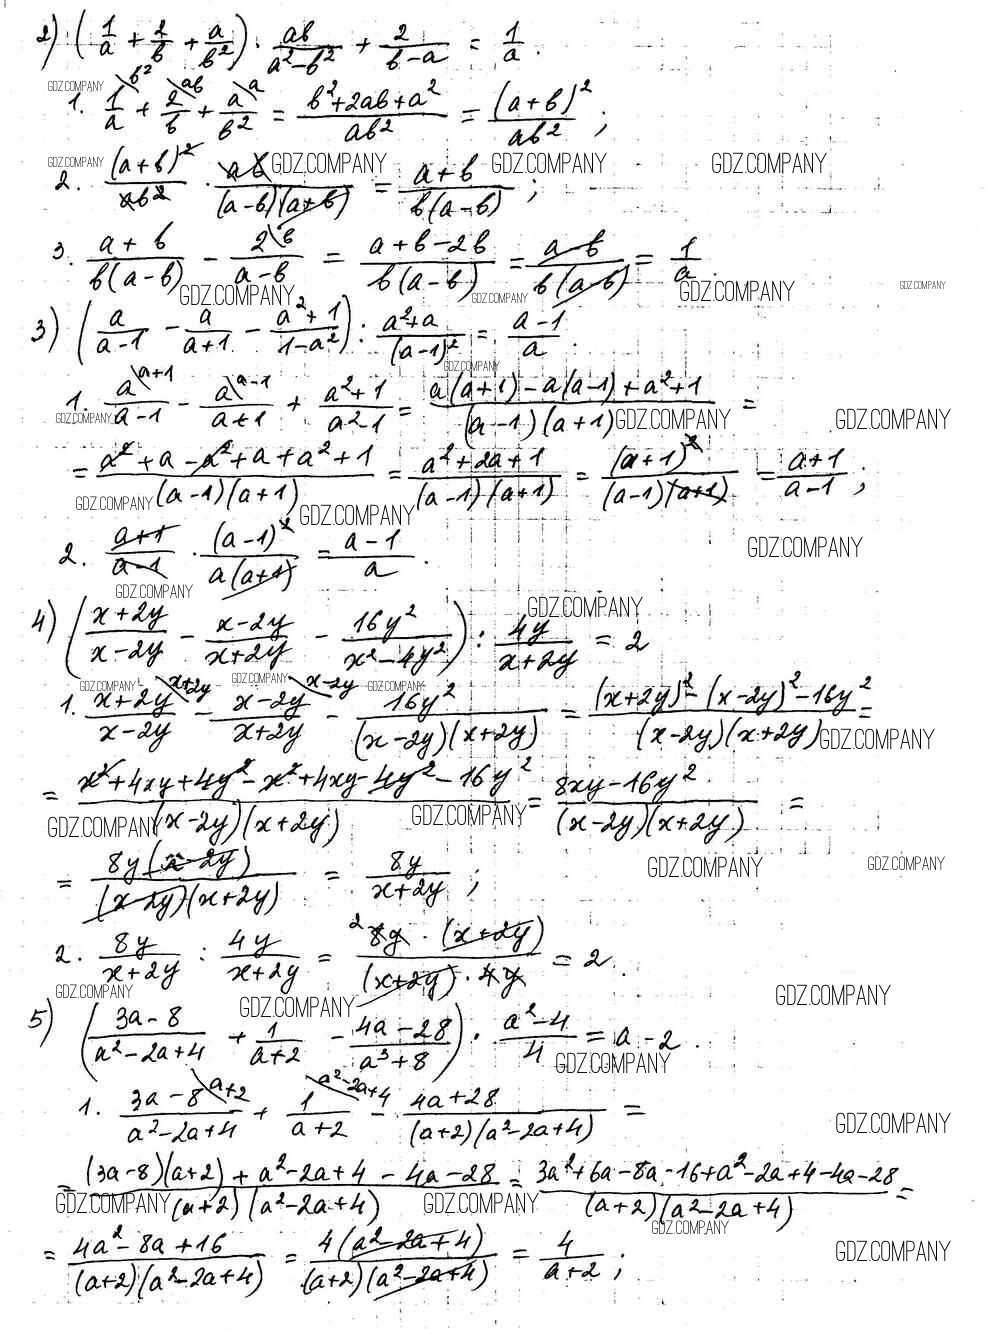 2) (1/a + 2/b + a/b²) · ab/(a²-b²) + 2/(b-a) = 1/a.
GDZ.COMPANY
1. 1/a \b² + 2/b \ab + a/b² \a = (b²+2ab+a²)/(ab²) = (a+b)²/(ab²) ;
GDZ.COMPANY GDZ.COMPANY GDZ.COMPANY GDZ.COMPANY
2. (a+b)²/(ab²) · ab/((a-b)(a+b)) = (a+b)/(b(a-b)) ;
3. (a+b)/(b(a-b)) - 2/(a-b) \b = (a+b-2b)/(b(a-b)) = (a-b)/(b(a-b)) = 1/a.
GDZ.COMPANY GDZ.COMPANY GDZ.COMPANY GDZ.COMPANY
3) (a/(a-1) - a/(a+1) - (a²+1)/(1-a²)) : (a²+a)/(a-1)² = (a-1)/a.
GDZ.COMPANY
1. a/(a-1) \a+1 - a/(a+1) \a-1 + (a²+1)/(a²-1) = (a(a+1)-a(a-1)+a²+1)/((a-1)(a+1)) =
GDZ.COMPANY GDZ.COMPANY GDZ.COMPANY
= (a²+a-a²+a+a²+1)/((a-1)(a+1)) = (a²+2a+1)/((a-1)(a+1)) = (a+1)²/((a-1)(a+1)) = (a+1)/(a-1) ;
GDZ.COMPANY GDZ.COMPANY
2. (a+1)/(a-1) · (a-1)²/(a(a+1)) = (a-1)/a.
GDZ.COMPANY
GDZ.COMPANY GDZ.COMPANY
4) ((x+2y)/(x-2y) - (x-2y)/(x+2y) - 16y²/(x²-4y²)) : 4y/(x+2y) = 2
GDZ.COMPANY GDZ.COMPANY GDZ.COMPANY
1. (x+2y)/(x-2y) \x+2y - (x-2y)/(x+2y) \x-2y - 16y²/((x-2y)(x+2y)) = ((x+2y)²-(x-2y)²-16y²)/((x-2y)(x+2y)) =
GDZ.COMPANY
= (x²+4xy+4y²-x²+4xy-4y²-16y²)/((x-2y)(x+2y)) = (8xy-16y²)/((x-2y)(x+2y)) =
GDZ.COMPANY GDZ.COMPANY
GDZ.COMPANY GDZ.COMPANY
= 8y(x-2y)/((x-2y)(x+2y)) = 8y/(x+2y) ;
2. 8y/(x+2y) : 4y/(x+2y) = 2 8y·(x+2y)/((x+2y)·4y) = 2.
GDZ.COMPANY GDZ.COMPANY GDZ.COMPANY
5) ((3a-8)/(a²-2a+4) + 1/(a+2) - (4a-28)/(a³+8)) · (a²-4)/4 = a-2.
GDZ.COMPANY
1. (3a-8)/(a²-2a+4) \a+2 + 1/(a+2) \a²-2a+4 - (4a+28)/((a+2)(a²-2a+4)) =
GDZ.COMPANY
= ((3a-8)(a+2)+a²-2a+4-4a-28)/((a+2)(a²-2a+4)) = (3a²+6a-8a-16+a²-2a+4-4a-28)/((a+2)(a²-2a+4)) =
GDZ.COMPANY GDZ.COMPANY GDZ.COMPANY
= (4a²-8a+16)/((a+2)(a²-2a+4)) = 4(a²-2a+4)/((a+2)(a²-2a+4)) = 4/(a+2) ;
GDZ.COMPANY